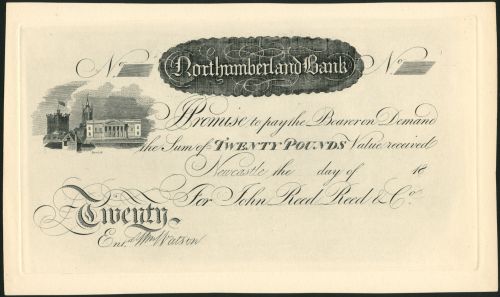 Northumberland Bank
No
No
I Promise to pay the Bearer on Demand
the Sum of TWENTY POUNDS Value received
Newcastle the day of 18
For John Reed Reed & Co.
Twenty
Entd. Watson